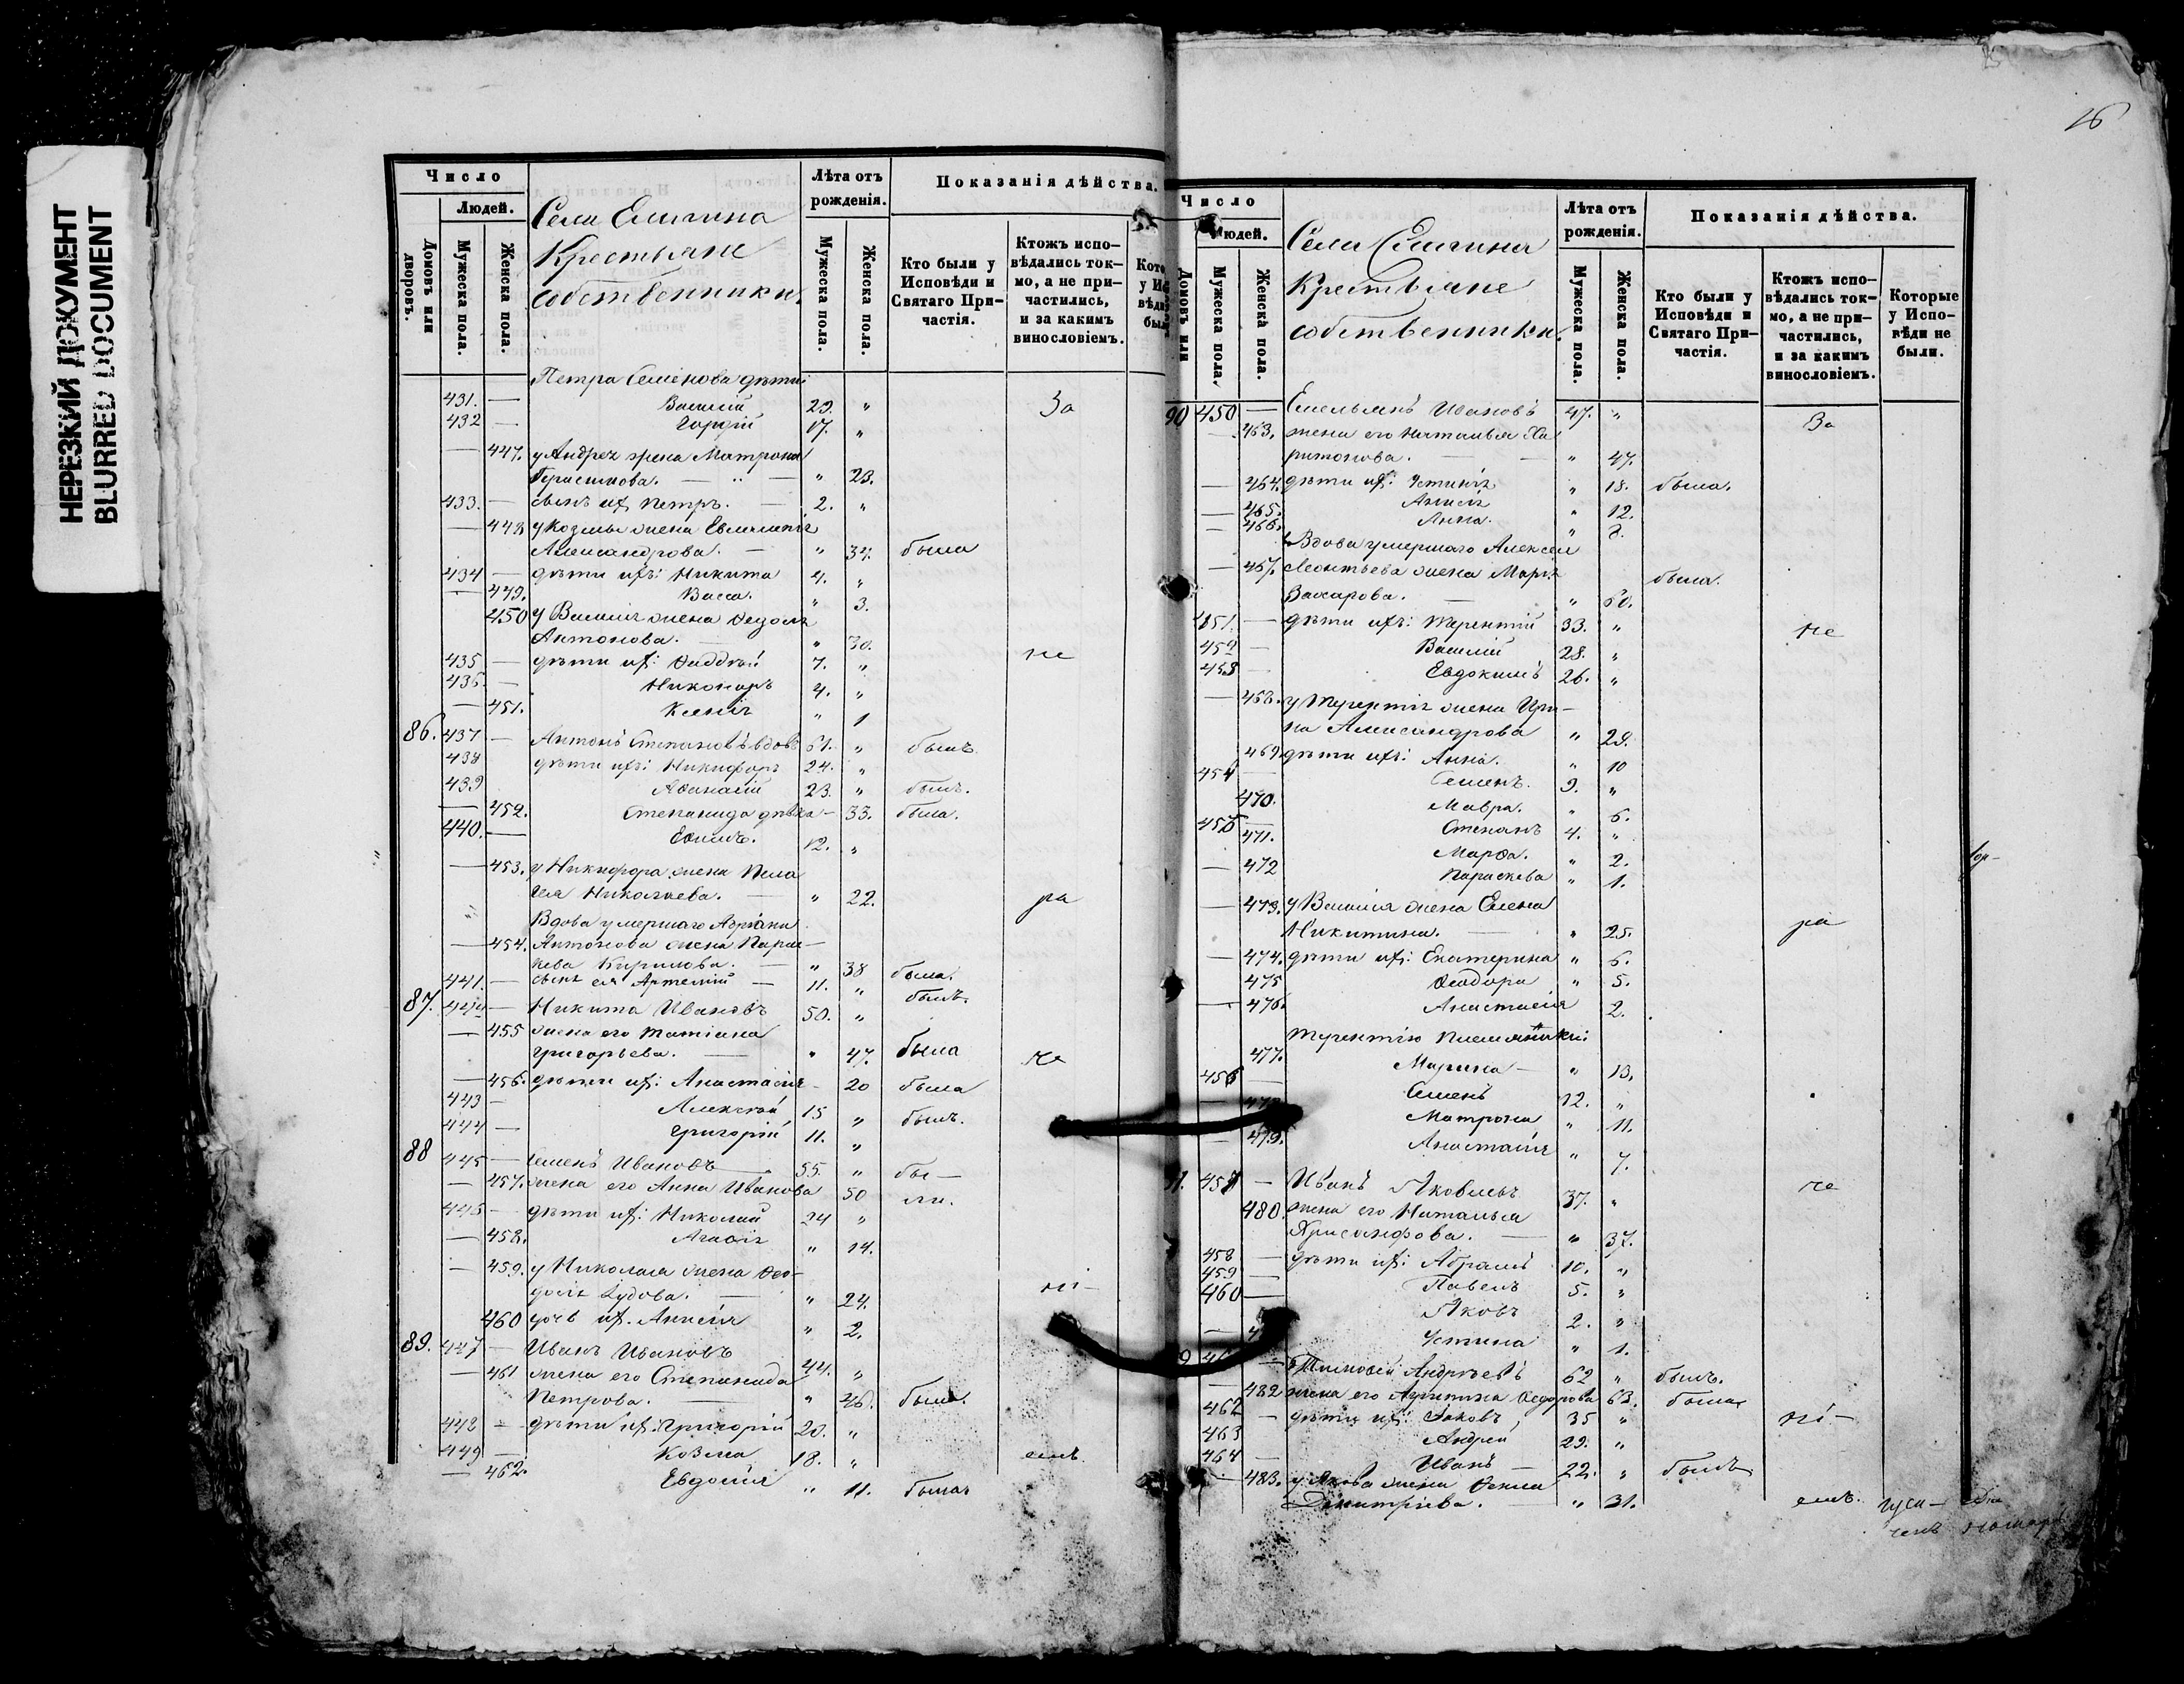 НЕРЕЗКИЙ ДОКУМЕНТ
BLURRED DOCUMENT
Число
Людей.
Домовъ или дворовъ.
Мужеска пола.
Женска пола.
Села Елигина
Крестьяне
собственники
Лѣта отъ рожденія.
Мужеска пола.
Женска пола.
Показанія дѣйства.
Кто были у Исповѣди и Святаго Причастія.
Ктожъ исповѣдались токмо, а не причастились, и за какимъ винословіемъ.
Петра Семенова дѣти:
431. — Василій 29. " За
432 — Гордій 17. "
— 447. у Андрея жена Матрона
Герасимова. — " 23.
433. — сынъ их Петръ. — 2. "
— 448 у Козмы жена Евгенія
Александрова. — " 34. была
434 — дѣти ихъ: Никита 4. "
— 449. Васса. " 3.
450 у Василія жена Ѳедосія
Антонова. " 30.
435 — дѣти их: Фаддей 7. " не
436. — Никоноръ 4. "
— 451. Ксенія " 1
86. 437 — Антонъ Степановъ вдовъ 61. " былъ
438 дѣти ихъ: Никифоръ 24. "
439 Аѳанасій 23. " былъ.
— 452. Степанида дѣвка — 33. была.
440. — Ефимъ. 12. "
— 453. у Никифора жена Пела
гея Николаева. — " 22. ра
Вдова умершаго Адріана
— 454. Антонова жена Парас—
кева Кирилова. — " 38 была.
441. — сынъ ея Артемій — 11. " былъ
87. 442 — Никита Ивановъ 50. "
— 455 жена его Татіана
Григорьева. — " 47. была не
— 456. дѣти их: Анастасія — 20 была
443 — Алексѣй 15 " былъ.
444 — Григорій 11. "
88 445 — Семенъ Ивановъ 55. " бы—
— 457. жена его Анна Иванова 50 ли.
446 — дѣти их: Николай 24 "
— 458. Агафія " 14.
— 459. у Николая жена Ѳео—
досія — " 24. ні—
460 дочь их. Анисія " 2.
89. 447 — Иванъ Ивановъ 44. "
— 461 жена его Степанида
Петрова. — " 46. была.
448 — дѣти их: Григорій 20. "
449 — Козма 18. " емъ.
— 462. Евдокія " 11. была
16
Число
Людей.
Домовъ или
Мужеска пола.
Женска пола.
Села Елигина
Крестьяне
собственники
Лѣта отъ рожденія.
Мужеска пола.
Женска пола.
Показанія дѣйства.
Кто были у Исповѣди и Святаго Причастія.
Ктожъ исповѣдались токмо, а не причастились, и за какимъ винословіемъ.
Которые у Исповѣди не были.
90 450 — Емельянъ Ивановъ 47. " За
— 463. жена его Наталья Ха
ритонова. — " 47.
— 464. дѣти их: Устинія " 18. была.
— 465. Анисія " 12.
— 466. Анна. "
Вдова умершаго Алексѣя
— 467. Леонтьева жена Марія
Захарова. — " 60. была.
451. — дѣти ихъ: Терентій 33. " не
452 — Василій 28. "
453 — Евдокимъ 26. "
— 468. у Терентія жена Ири—
на Александрова " 28.
469. дѣти ихъ: Анна. " 10
454 — Семенъ. 9. "
470. Мавра. " 6.
455 — Степанъ 4. "
471. Марфа. " 2.
— 472 Параскева " 1.
— 473. у Василія жена Елена
Никитина. — " 25. ра
— 474. дѣти их: Екатерина " 6.
475 Ѳеодора " 5.
— 476. Анастасія 2.
Терентію племянники:
477. Марина — " 13.
456 — Семенъ 12. "
Матрона " 11.
— 479. Анастасія " 7.
91. 457 — Иванъ Яковлевъ 37. " не
480. жена его Наталья
Хрисанфова. — " 37.
458 — дѣти их: Абрамъ 10. "
459 — Павелъ 5. "
460 — Яковъ 2. "
Устина " 1.
Тимофей Андреевъ 62 " былъ.
— 482 жена его Ѳедорова 63. была
462 — дѣти их: Яковъ 35 " ні—
463 Андрей 29. "
464 — Иванъ — 22. " былъ
— 483. у Якова жена Ѳекла
Димитріева. — " 31. емъ.